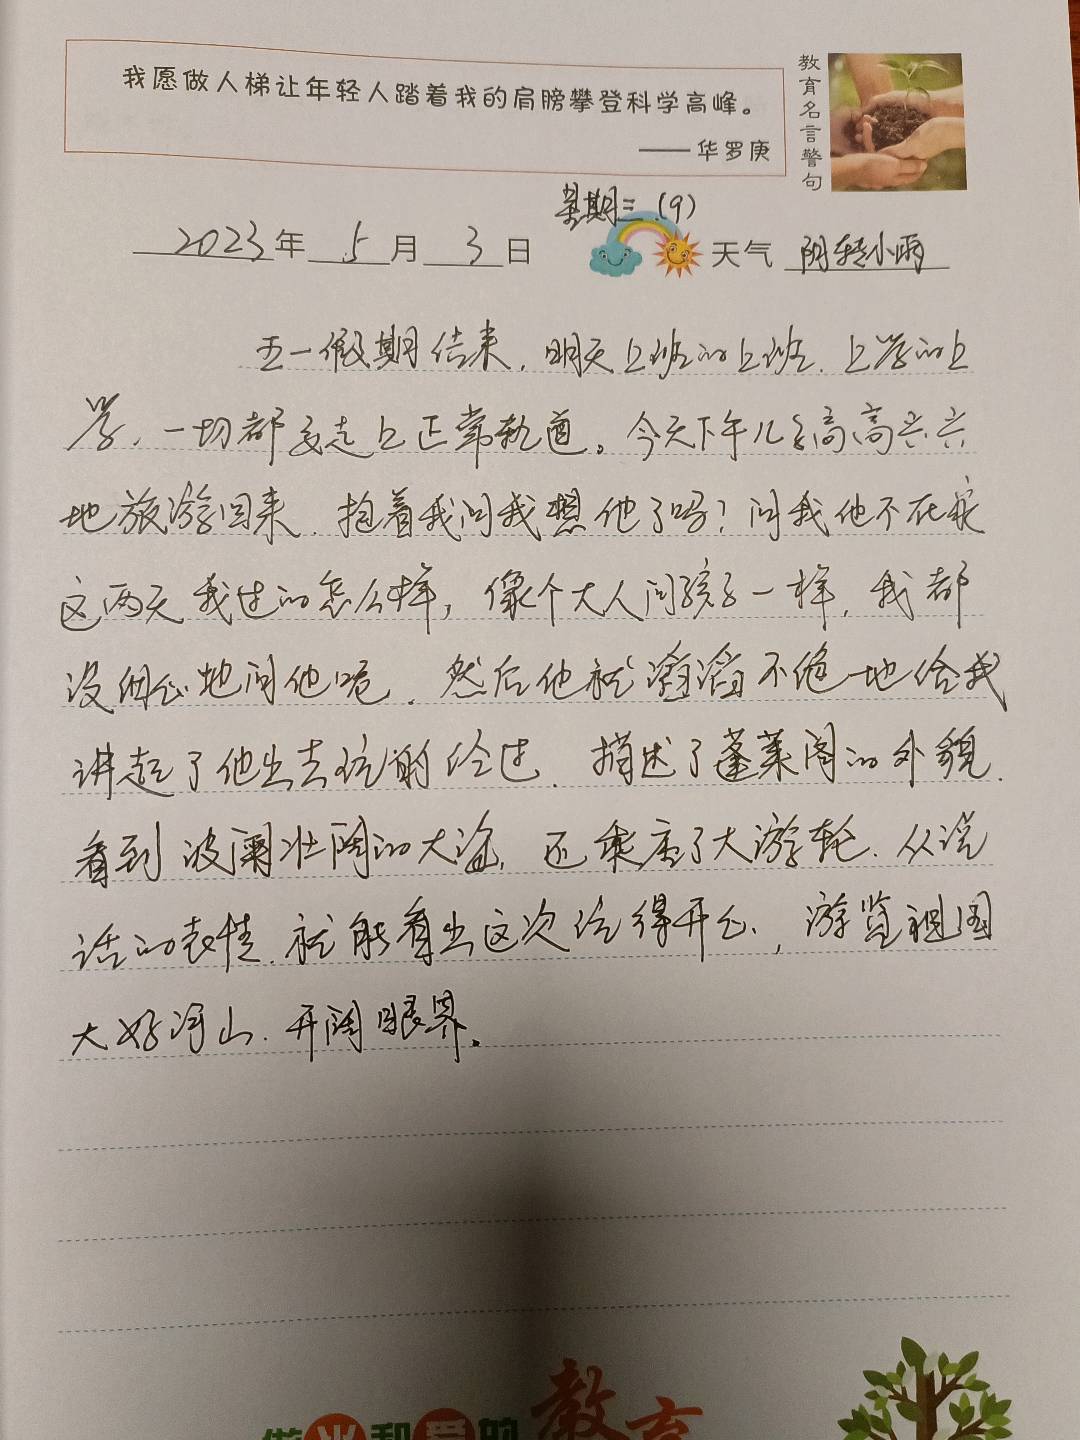 我愿做人梯让年轻人踏着我的肩膀攀登科学高峰。
——华罗庚
教育名言警句
星期三（9）
2023年 5月 3日 天气 阴转小雨
五一假期结束，明天上班的上班，上学的上
学，一切都要走上正常轨道。今天下午儿子高高兴兴
地旅游回来，抱着我问我想他了吗？问我他不在家
这两天我过的怎么样，像个大人问孩子一样，我都
没细心地问他呢，然后他就滔滔不绝地给我
讲起了他出去玩的经过，描述了蓬莱阁的外貌，
看到波澜壮阔的大海，还乘坐了大游轮，从说
话的表情，就能看出这次玩得开心，游览祖国
大好河山，开阔眼界。
教育